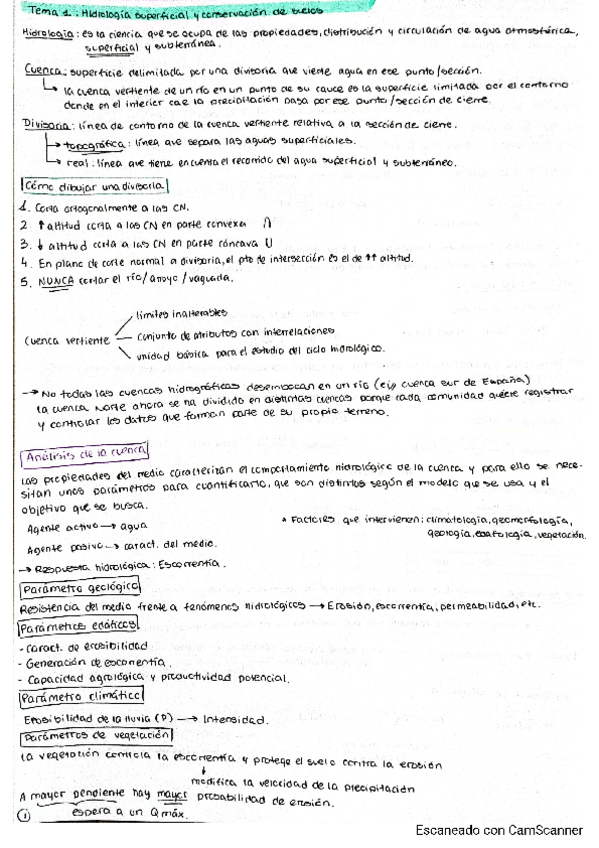 Tema 1: Hidrología superficial y conservación de suelos
Hidrología: es la ciencia que se ocupa de las propiedades, distribución y circulación de agua atmosférica,
superficial y subterránea.
Cuenca: superficie delimitada por una divisoria que vierte agua en ese punto/sección.
la cuenca vertiente de un río en un punto de su cauce es la superficie limitada por el contorno
donde en el interior cae la precipitación pasa por ese punto/sección de cierre.
Divisoria: línea de contorno de la cuenca vertiente relativa a la sección de cierre.
→ topográfica: línea que separa las aguas superficiales.
→ real: línea que tiene en cuenta el recorrido del agua superficial y subterráneo.
Cómo dibujar una divisoria
1. Corta ortogonalmente a las CN.
2. ↑ altitud corta a las CN en parte convexa ∩
3. ↓ altitud corta a las CN en parte cóncava U
4. En plano de corte normal a divisoria, el pto de intersección es el de ↑↑ altitud.
5. NUNCA cortar el río/arroyo/vaguada.
límites inalterables
Cuenca vertiente conjunto de atributos con interrelaciones
unidad básica para el estudio del ciclo hidrológico.
→ No todas las cuencas hidrográficas desembocan en un río (ej, cuenca sur de España)
la cuenca Norte ahora se ha dividido en distintas cuencas porque cada comunidad quiere registrar
y controlar los datos que forman parte de su propio terreno.
Análisis de la cuenca
Las propiedades del medio caracterizan el comportamiento hidrológico de la cuenca y para ello se nece-
sitan unos parámetros para cuantificarlo, que son distintos según el modelo que se usa y el
objetivo que se busca.
Agente activo → agua
* Factores que intervienen: climatología, geomorfología,
geología, edafología, vegetación.
Agente pasivo → caract. del medio.
→ Respuesta hidrológica: Escorrentía.
Parámetro geológico
Resistencia del medio frente a fenómenos hidrológicos → Erosión, escorrentía, permeabilidad, etc.
Parámetros edáficos
- Caract. de erosibilidad
- Generación de escorrentía.
- Capacidad agrológica y productividad potencial.
Parámetro climático
Erosibilidad de la lluvia (P) → Intensidad.
Parámetros de vegetación
La vegetación controla la escorrentía y protege el suelo contra la erosión
modifica la velocidad de la precipitación
A mayor pendiente hay mayor probabilidad de erosión.
espera a un Qmáx.
1
Escaneado con CamScanner